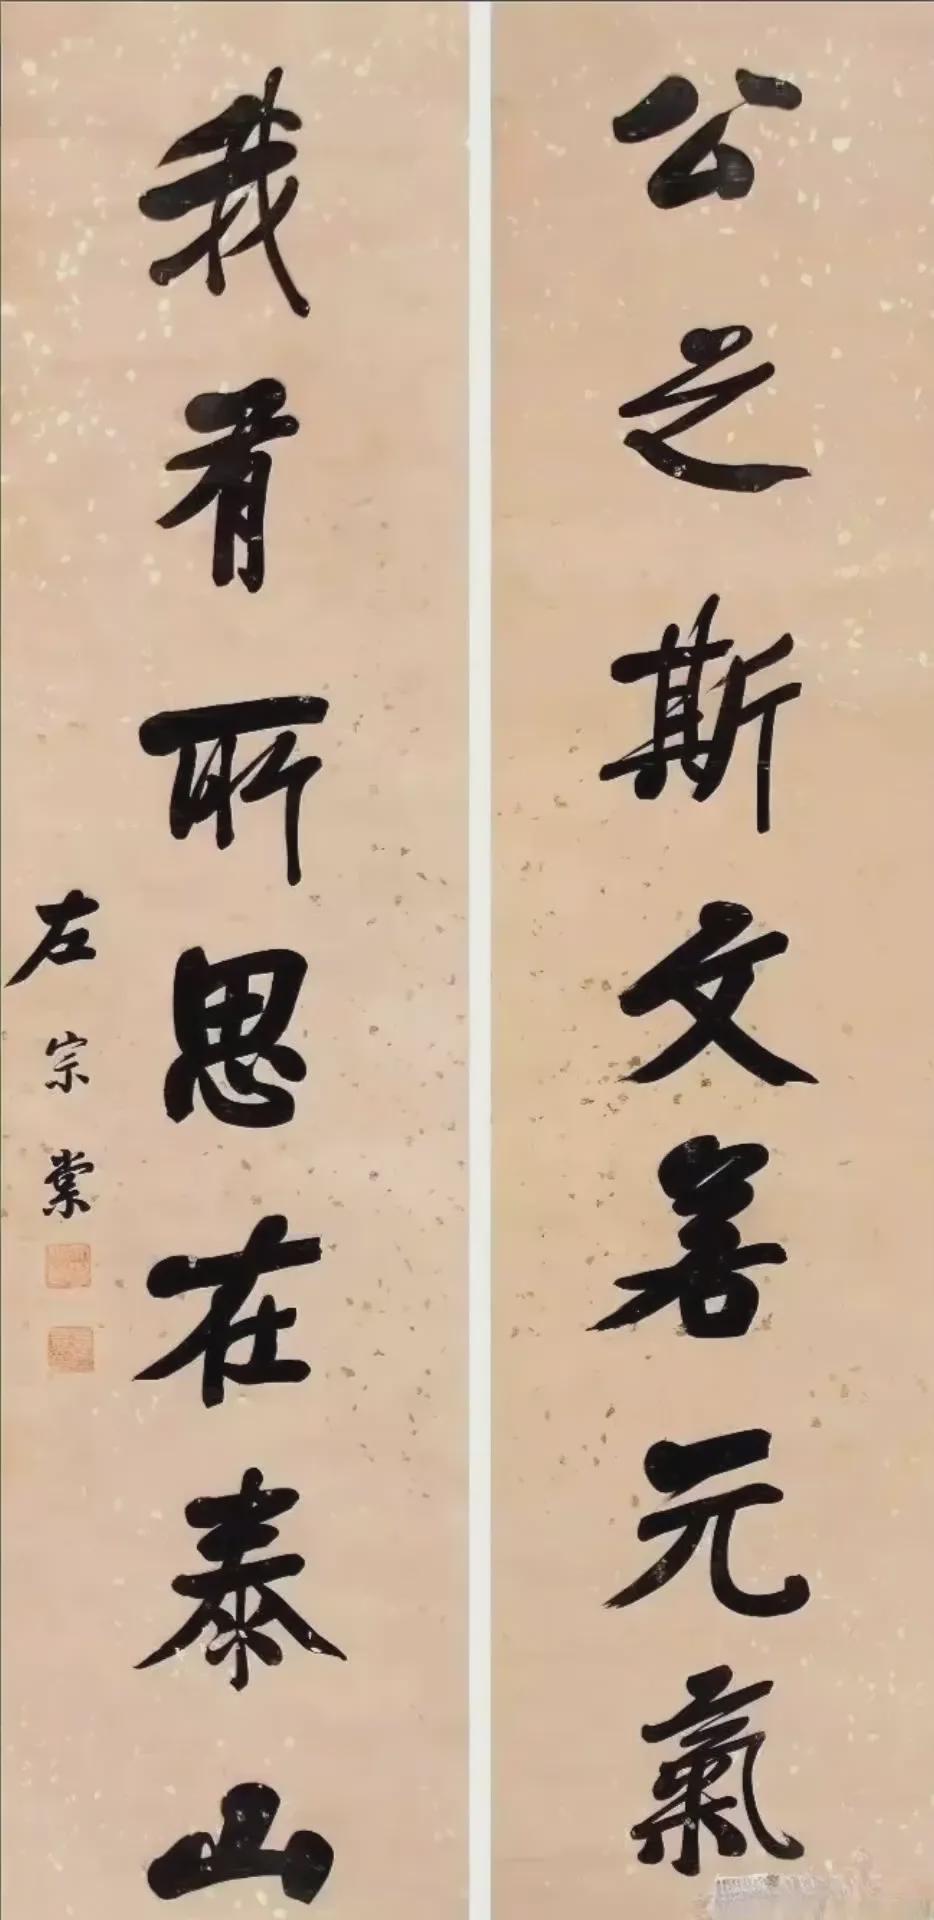 公之斯文若元氣
我有所思在泰山
左宗棠